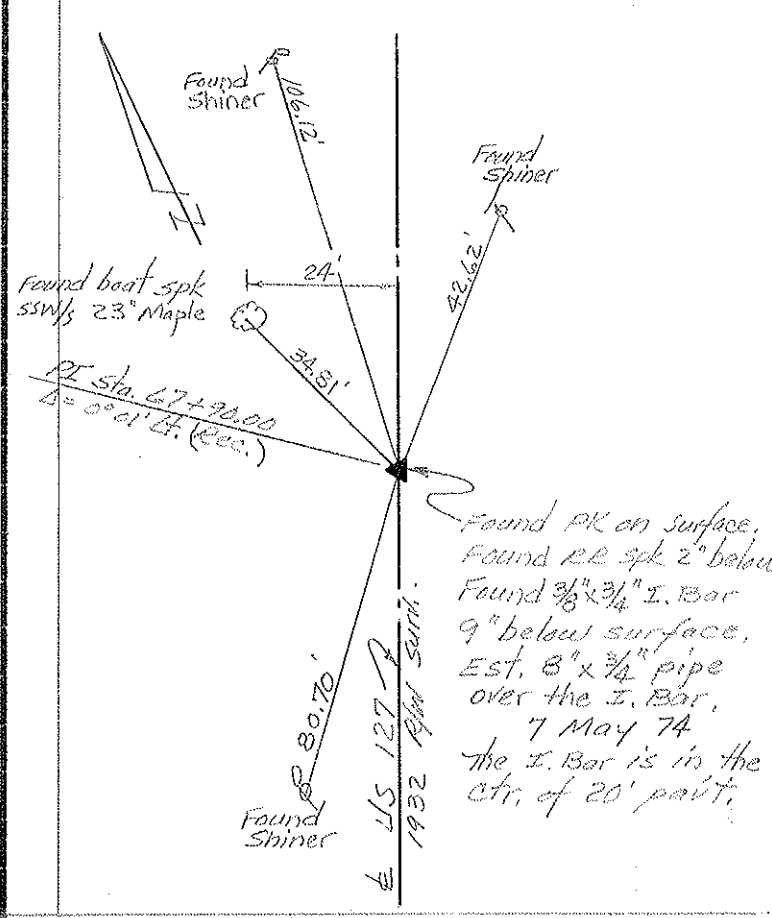 Found
Shiner
106.12'
Found
Shiner
N
24'
42.62'
Found boat spk
SSW/s 23" Maple
34.81'
PI Sta. 67+90.00
Δ = 0°01' Lt. (Rec.)
Found PK on surface.
Found RR spk 2" below
Found 3/8" x 3/4" I. Bar
9" below surface.
Est. 8" x 3/4" pipe
over the I. Bar.
7 May 74
The I. Bar is in the
Ctr. of 20' pav't.
80.70'
Found
Shiner
℄ US 127
1932 Surv.